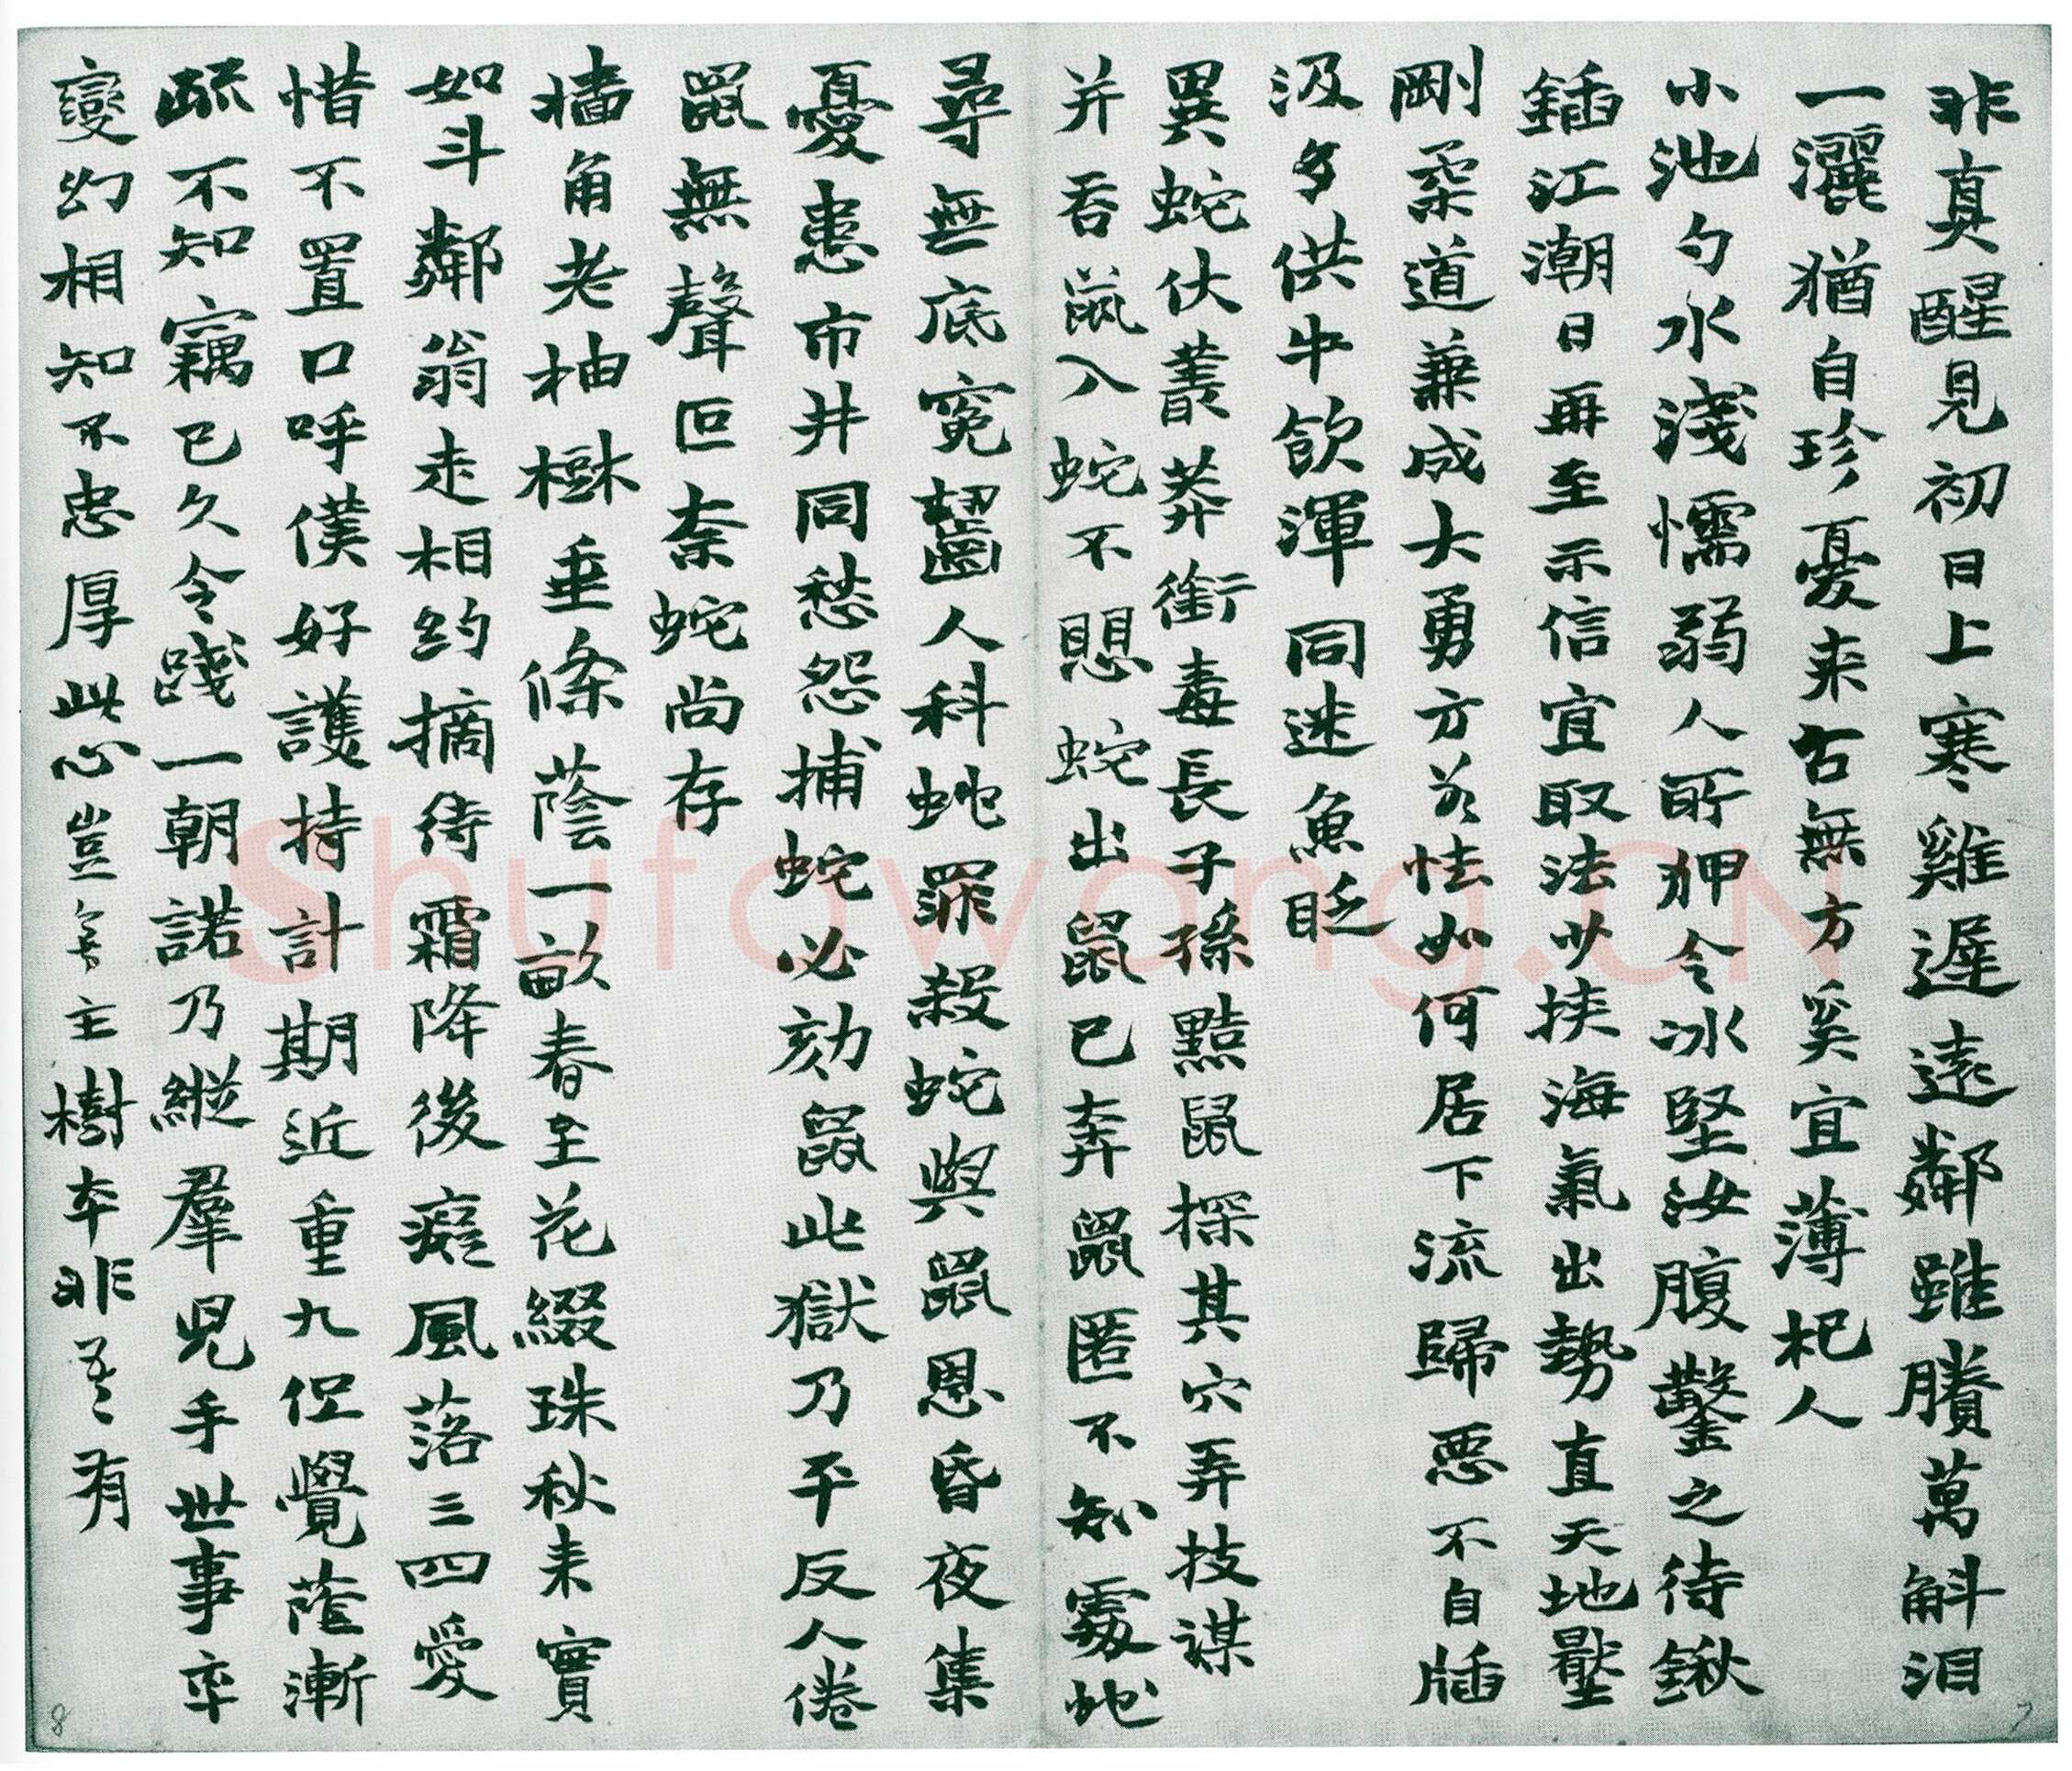 非真醒見初日上寒雞遲遠鄰雖賸萬斛泪
一灑猶自珍憂来古無方奚宜薄杞人
小池勺水淺懦弱人所狎令冰堅汝腹鑿之待鍬
鍤江潮日再至示信宜取法少挾海氣出勢直天地壓
剛柔道兼成大勇方若怯如何居下流歸惡不自牐
汲多供牛飲渾同迷魚眨
異蛇伏叢莽銜毒長子孫黠鼠探其穴弄技謀
并吞鼠入蛇不思蛇出鼠已奔鼠匿不知處蛇
尋無底冤齧人科蛇罪殺蛇與鼠恩昏夜集
憂患市井同愁怨捕蛇必劾鼠此獄乃平反人倦
鼠無聲叵奈蛇尚存
墻角老柚樹垂條蔭一畝春至花綴珠秋来實
如斗鄰翁走相約摘待霜降後癡風落三四愛
惜不置口呼僕好護持計期近重九但覺蔭漸
疏不知竊已久令踐一朝諾乃縱羣兒手世事率
變幻相知不忠厚此心豈無主樹本非吾有
Shufawang.CN
7
8